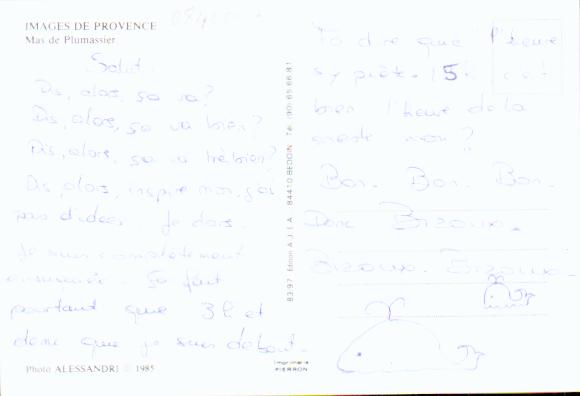 IMAGES DE PROVENCE
Mas de Plumassier
Salut.
Dis, alors, ça va?
Dis, alors, ça va bien?
Dis, alors, ça va très bien?
Dis, alors, inspire moi, j'ai
pas d'idées. Je dors.
Je suis complètement
ensuquée. Ça fait
pourtant que 3h et
donc que je suis debout.
Photo ALESSANDRI © 1985
83.97 Edition A.J.L.A. 84410 BEDOIN Tél. (90) 65.66.81
Imprimerie
PIERRON
dire que l'heure
s'y prête. 15h c'est
bien l'heure de la
sieste non?
Bon. Bon. Bon.
Donc Bizoux.
Bizoux. Bizoux.